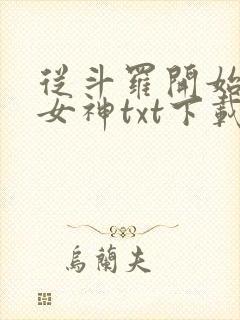 從斗羅開始
女神txt下載
烏蘭夫